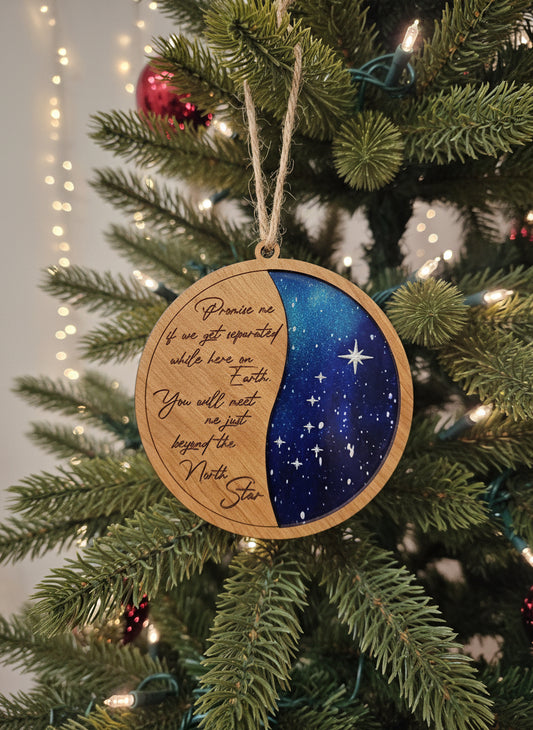 Promise me
if we get separated
while here on
Earth.
You will meet
me just
beyond the
North
Star